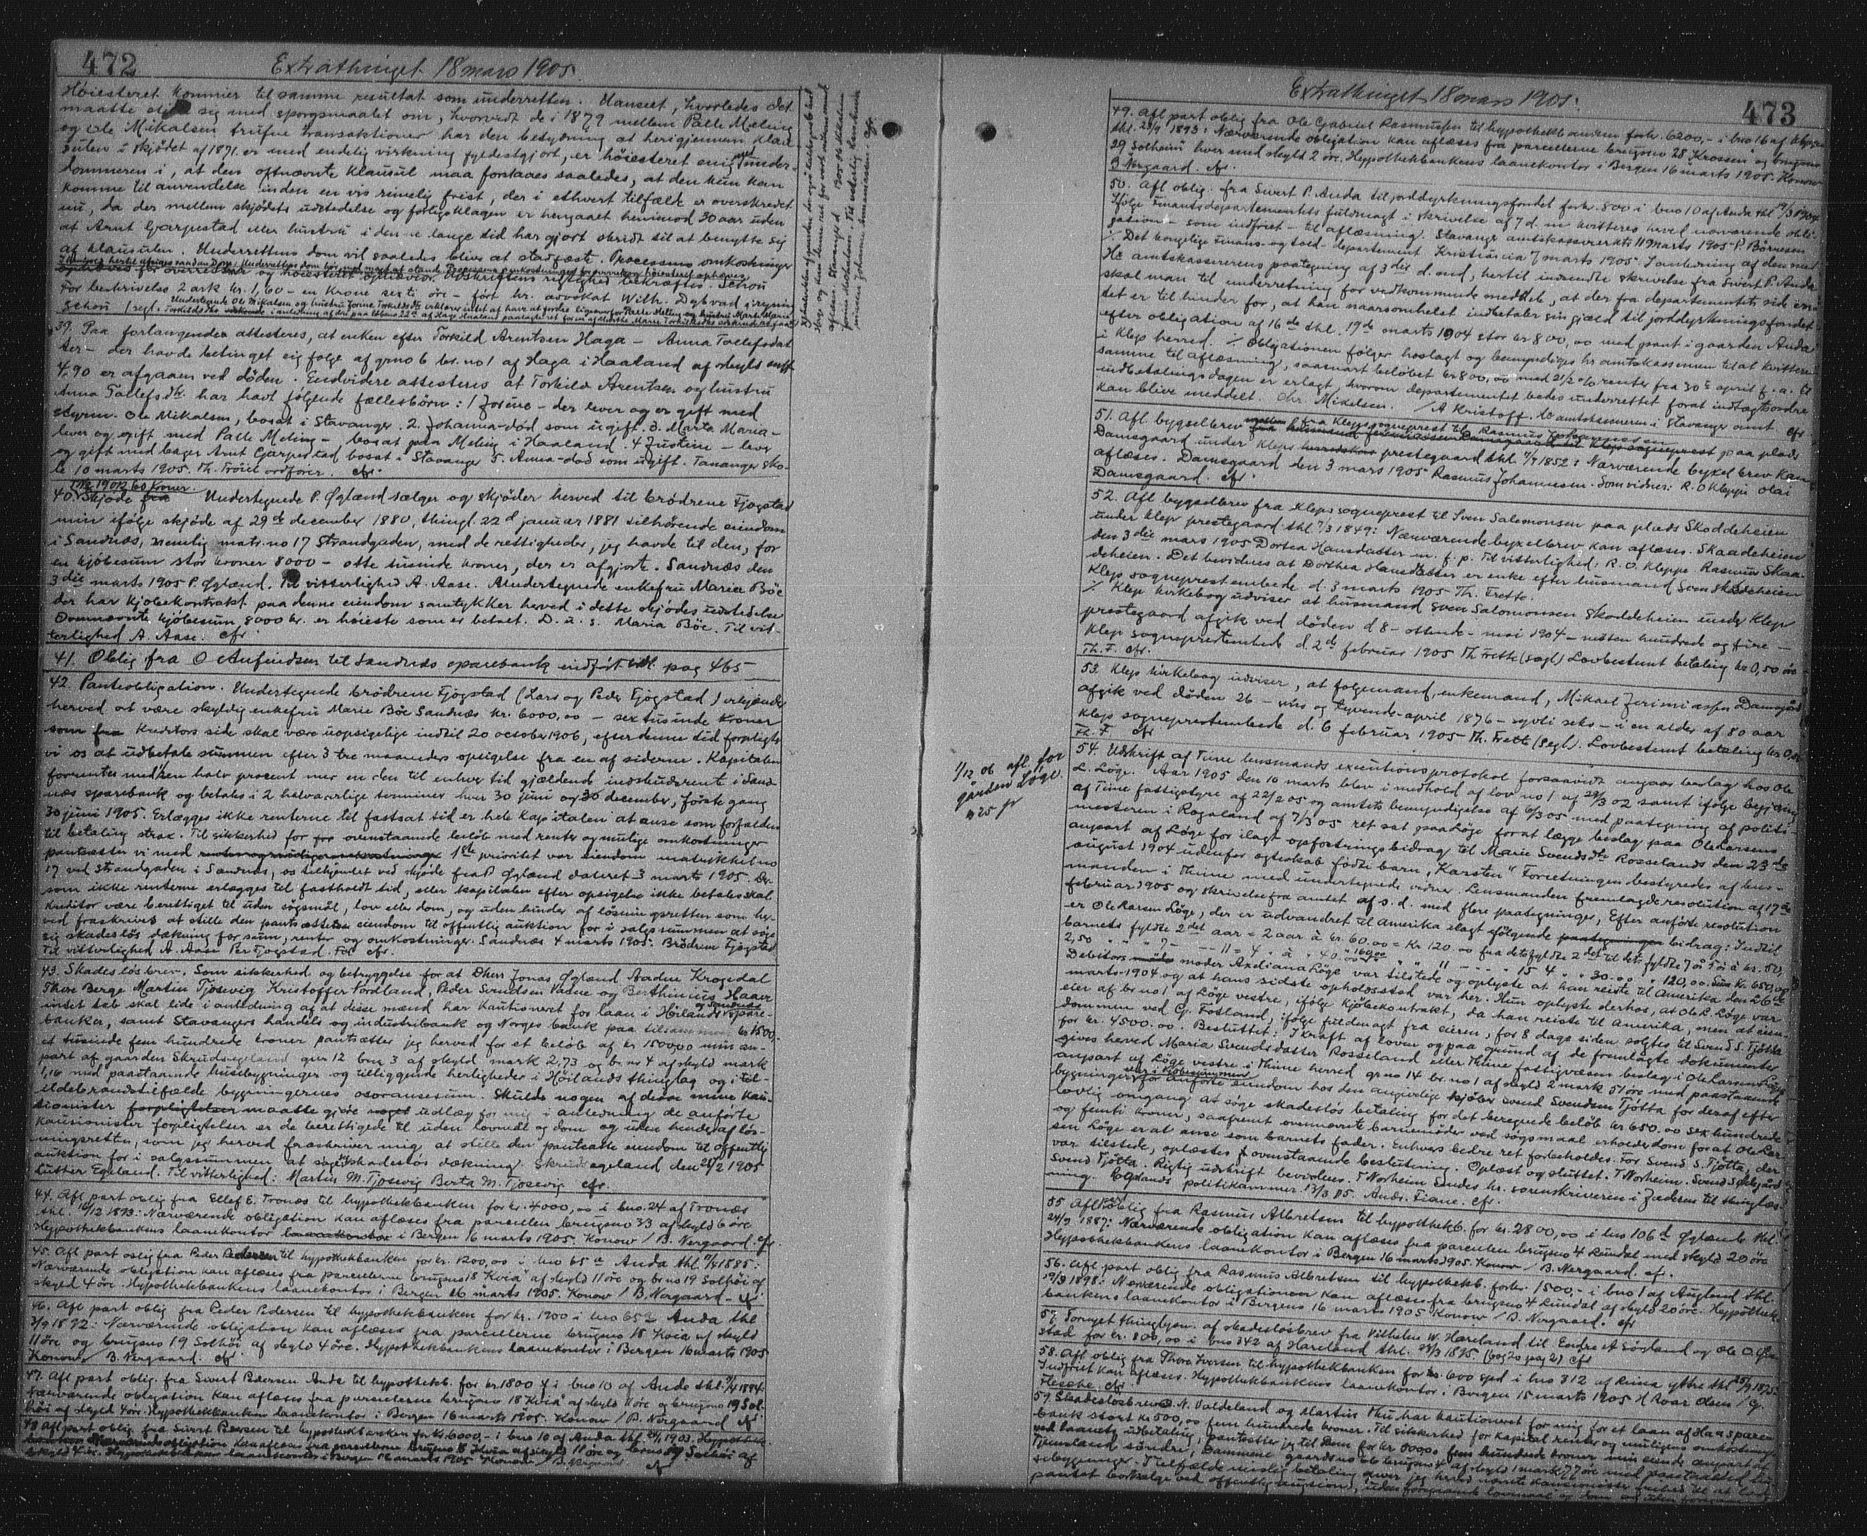 472
Extrathinget 18 mars 1905.
Høiesteret kommer til samme resultat som underretten. Uanseet, hvorledes det
maatte sig med spørgsmaalet om, hvorvidt de i 1879 mellem Palle Meling
og Ole Mikalsen trufne transaktioner har den betydning at herigjennem klau-
sulen i skjødet af 1871 er med endelig virkning fyldestgjort, er høiesteret enig med under-
dommeren i, at den ofnævnte klausul maa forstaaes saaledes, at den kun kan
komme til anvendelse inden en vis rimelig frist, der i ethvert tilfælde er overskredet
nu, da der mellem skjødets udstedelse og forligsklagen er hengaaet henimod 30 aar uden
at Arnt Gjærpestad eller hustru i denne lange tid har gjort skridt til at benytte sig
af klausulen. Underrettens dom vil saaledes blive at stadfæste. Processens omkostninger
Udskriftens rigtighed bekræftes. Schou
For beskrivelse 2 ark kr. 1,60 - en krone sexti øre - ført hr. advokat Wilh. Dybvad i regning
Schou
39. Paa forlangende attesteres, at enken efter Torkild Arentsen Haga - Anna Tollefsdat
ter - der havde betinget sig folge af grno 6 br. no 1 af Haga i Haaland af skyld mk
4.90 er afgaaen ved døden. Endvidere attesteres at Torkild Arentsen og hustru
Anna Tollefsdtr. har havt følgende fællesbørn: 1 Jorine - der lever og er gift med
styrm. Ole Mikalsen, bosat i Stavanger. 2. Johanna - død som ugift. 3. Marta Maria -
lever og gift med Palle Meling - bosat paa Meling i Haaland. 4 Justine - lever
og gift med bager Arnt Gjærpestad bosat i Stavanger 5. Anna - død som ugift. Tananger sko-
le 10 marts 1905. Th. Troiie ordfører. cfr.
40. Skjøde Undertegnede P. Øgland sælger og skjøder herved til brødrene Fjogstad
min ifølge skjøde af 29de december 1880, thingl. 22d januar 1881 tilhørende eiendom
i Sandnæs, nemlig matr. no 17 Strandgaden, med de rettigheder, jeg havde til den, for
en kjøbesum stor kroner 8000 - otte tusinde kroner, der er afgjort. Sandnæs den
3die marts 1905 P. Øgland. Til vitterlighed A. Aase. Undertegnede enkefru Maria Böe
der har kjøbekontrakt paa denne eiendom samtykker herved i dette skjødes udstedelse
Ovennævnte kjøbesum 8000 kr. er høieste som er betaet. D. u. s. Maria Böe. Til vit-
terlighed A. Aase. cfr.
41. Oblig fra O Aufindsen til Sandnæs sparebank indført pag 465
42. Panteobligation. Undertegnede brödrene Fjögstad (Lars og Peder Fjögstad) erkjender
herved at være skyldig enkefru Marie Böe Sandnæs kr. 6000,00 - sextusinde kroner
som fra Kreditors side skal være uopsigelige indtil 20 october 1906, efter denne tid forpligter
vi os at udbetale summen efter 3 tre maaneders opsigelse fra en af siderne. Kapitalen
forrentes med en halv procent mer en den til enhver tid gjældende indskudsrente i Sand-
næs sparebank og betales i 2 helvaarlige terminer hver 30 juni og 30 december, første gang
30 juni 1905. Erlægges ikke renterne til fastsat tid er hele kapitalen at anse som forfalden
til betaling strax. Til sikkerhed for ovenstaaende beløb med renter og mulige omkostninger
pantsætter vi med 1ste prioritet vor eiendom matrikkel no
17 ved Strandgaden i Sandnæs, os tilskjødet ved skjøde fra P. Øgland dateret 3 marts 1905. Der-
som ikke renterne erlægges til fastholdt tid, eller kapitalen efter opsigelse ikke betales skal
kreditor være berettiget til uden søgsmål, lov eller dom, og uden hinder af løsningsretten som her-
ved fraskrives at stille den pantsatte eiendom til offentlig auktion for i salgssummen at søge
sig skadesløs dækning for sum, renter og omkostninger. Sandnæs 4 marts 1905. Brödrene Fjögstad
Til vitterlighed A. Aase Per Fjögstad. cfr.
43. Skadesløsbrev. Som sikkerhed og betryggelse for at DHerr Jonas Øgland Aaden Krogedal
Thore Berge Martin Tjosevig Kristoffer Nordland, Peder Svendsen Vasne og Berthinius Haaer
intet tab skal lide i anledning af at disse mænd har kautioneret for laan i Høilands og Sandnæs spare-
banker, samt Stavangers handels og industribank og Norges bank paa tilsammen kr 1500
et tusinde fem hundrede kroner pantsætter jeg herved for et beløb af kr 1500,00 min an-
part af gaarden Skrudsegeland gnr 12 bno 3 af skyld mark 2,73 og br no 4 af skyld mark
1,16 med paastaaende husebygninger og tilliggende herligheder i Høilands thinglag og i til-
ildebrandstilfælde bygningernes assuransesum. Skulde nogen af disse mine kau-
tionister maatte gjøre udlæg for mig i anledning de anførte
kautionister forpligtelser er de berettigede til uden lovmål og dom og uden hinder af løs-
ningsretten, som jeg herved fraskriver mig, at stille den pantsatte eiendom til offentlig
auktion for i salgssummen at søge skadesløs dækning. Skrudsegeland den 28/2 1905
Lutter Egeland. Til vitterlighed: Martin M. Tjosevig Berta M. Tjosevig cfr.
44. Afl part oblig fra Ellef E. Tronæs til hypothekbanken for kr. 4000,00 i bno. 24 af Tronæs
thl. 16/12 1893: Nærværende obligation kan aflæses fra parcellen brugsno 33 af skyld 6 öre
Hypothekbankens laanekontor i Bergen 16 marts 1905. Konow / B. Nergaard. cfr
45. Afl part oblig fra Peder Pedersen til hypothekbanken for kr. 1200,00 i bno 65a Anda thl 9/4 1885:
Nærværende obligation kan aflæses fra parcellerne brugsno 18 Kvia af skyld 11 öre og br no 19 Solhöi af
skyld 4 öre. Hypothekbankens laanekontor i Bergen 16 marts 1905. Konow / B. Nergaard - cfr
46. Afl part oblig fra Peder Pedersen til hypothekbanken for kr. 1900 i bno 65a Anda thl
3/9 1892: Nærværende obligation kan aflæses fra parcellerne brugsno 18 Kvia af skyld
11 öre og brugsno 19 Solhöi af skyld 4 öre. Hypothekbankens laanekontor i Bergen 16 marts 1905
Konow / B. Nergaard. cfr.
47. Afl part oblig. fra Sivert Pedersen Anda til hypothekb. for kr. 1800 i bno 10 af Anda thl. 9/4 1884.
Nærværende obligation kan aflæses fra parcellerne brugsno 18 Kvia af skyld 11 öre og brugsno 19 Sol-
höi af skyld 4 öre. Hypothekbankens laanekontor i Bergen 16 marts 1905. Konow / B. Nergaard cfr
48 Afl part oblig. fra Sivert Persen til hypothekbanken for kr. 6000 - i bno 10 af Anda thl. 1903. Hypothek-
Konow / B. Nergaard
cfr
473
Extrathinget 18 mars 1905.
49. Afl part oblig fra Ole Gabriel Rasmussen til hypothekbanken for kr. 6200,- i bno 16 af Klepp
thl. 29/9 1893: Nærværende obligation kan aflæses fra parcellerne brugsno 28 Krossen og brugsno
29 Solheim hver med skyld 2 öre. Hypothekbankens laanekontor i Bergen 16 marts 1905. Konow
B. Nergaard. cfr.
50. Afl oblig. fra Sivert P. Anda til jorddyrkningsfondet for kr. 800 i bno 10 af Anda thl 19/3 1904
Ifølge Finantsdepartementets fuldmagt i skrivelse af 7 d. m. kvitteres herved nærværende obli-
gation som indfriet - til aflæsning. Stavanger amtskassererkt. 11 marts 1905 P. Börresen
/. Det kongelige Finans og told departement Kristiania 7 marts 1905. I anledning af den med
Hr. amtskassererens paategning af 3die d. md, hertil indsendte skrivelse fra Sivert P. Anda
skal man til underretning for vedkommende meddele, at der fra departementets side in-
tet er til hinder for, at han naarsomhelst indbetaler sin gjæld til jorddyrkningsfondet
efter obligation af 16de thl. 19de marts 1904 stor kr. 800,00 med pant i gaarden Anda
i Klep herred. / Obligationen følger hoslagt og bemyndiges hr amtskasserer til at kvittere
samme til aflæsning, saasnart beløbet kr. 800,00 med 2 1/2 o/o renter fra 30te april f. a. til
indbetalingsdagen er erlagt, hvorom departementet bedes underrettet forat indtægtsordre
kan blive meddelt. Chr. Mikelsen. / A Kristoff. Hr amtskasserer i Stavanger amt cfr
51. Afl bygselbrev fra Kleps sogneprest til Rasmus Johannesen paa plads
Damsgaard under Kleps prestegaard thl. 7/7 1852: Nærværende byxelbrev kan
aflæses. Damsgaard den 3 mars 1905 Rasmus Johannesen. Som vidner: R. O Kleppe Olai
Damsgaard. cfr.
52. Afl bygselbrev fra Kleps sogneprest til Sven Salomonsen paa plads Skoddeheien
under Klep prestegaard thl 7/3 1849: Nærværende byxelbrev kan aflæses. Skaadeheien
den 3die mars 1905 Dortea Hansdatter m. f. p. Til vitterlighed: R. O. Kleppe Rasmus Skaa-
deheien. Det bevidnes at Dorthea Hansdatter er enke efter husmand Sven Skoddeheien
Klep sogneprestembede d. 3 marts 1905 Th. Frette.
/. Klep kirkebog udviser at husmand Sven Salomonsen Skoddeheien under Klep
prestegaard afgik ved døden d 8 - ottende - mai 1904 - nitten hundrede og fire -
Klep sogneprestembede d. 2d februar 1905 Th. Frette (segl) Lovbestemt betaling kr 0,50 öre
Th. F. cfr.
53. Klep kirkebog udviser, at folgemand, enkemand, Mikael Jerimiassen Damsgård
afgik ved døden 26 - sex og tyvende - april 1876 - sytti seks - i en alder af 80 aar
Klep sogneprestembede d. 6 februar 1905 - Th. Frette (segl). Lovbestemt betaling kr 0,50
Th. F. cfr
1/12 06 afl. for
gården Løge
n 25 pr
54. Udskrift af Time lensmands executionsprotokol forsaavidt angaar beslag hos Ole
L. Løge. Aar 1905 den 10 marts blev i medhold af lov no 1 af 29/3 02 samt ifølge begjæring
af Time fattigstyre af 22/2 05 og amtets bemyndigelse af 6/3 05 med paategning af politi-
mesteren i Rogaland af 7/3 05 ret sat paa Løge forat lægge beslag paa Ole Larsens
anpart af Løge for ilagt opfostringsbidrag til Marie Svendsdtr Rosselands den 23de
august 1904 udenfor ægteskab fødte barn, "Karsten" Forretningen bestyredes af lens-
manden i Thime med undertegnede vidner. Lensmanden fremlagde resolution af 17de
februar 1905 og skrivelse fra amtet af s. d. med flere paategninger. Efter anførte resolution
er Ole Larsen Løge, der er udvandret til Amerika ilagt følgende bidrag: Indtil
barnets fyldte 2det aar = 2 aar à kr. 60.00 = kr 120.00
Debitors moder Axeliana Løge var tilstede og oplyste at han reiste til Amerika den 26de
marts 1904 og at hans sidste opholdssted var her. Hun oplyste derhos, at Ole L Løge var
eier af br no 1 af Løge vestre, ifølge kjøbekontrakt, da han reiste til Amerika, men at eien-
dommen ved Gj. Fosland, ifølge fuldmagt fra eieren, for 8 dage siden solgtes til Svend S. Tjøtta
for kr. 4500.00. Besluttet: I kraft af loven og paa grund af de fremlagte dokumenter
gives herved Maria Svendsdatter Rosseland eller Thime fattigvæsen beslag i Ole Larsen Løges
anpart af Løge vestre i Thime herred gr no 14 br. no 1 af skyld 2 mark 51 öre med paastaaende
bygninger for anførte eiendom hos den angivelige kjøber Svend Svendsen Tjøtta for deraf efter
lovlig omgang at søge skadesløs betaling for det beregnede beløb kr 650.00 sex hundrede
og femti kroner, saafremt ovennævnte barnemoder ved søgsmaal erholder dom for at Ole Lar-
sen Løge er at anse som barnets fader. Enhvers bedre ret forbeholdes. For Svend S. Tjøtta, der
var tilstede, oplæstes ovenstaaende beslutning. Oplæst og sluttet. T Norheim. Svend S
Svend Tjøtta. Rigtig udskrift bevidnes. T Norheim Sendes hr. sorenskriveren i Jæderen til thinglæs-
ning. Rogalands politikammer 13/3 05. Ands. Liane. cfr.
55 Afl part oblig fra Rasmus Albretsen til hypothekb. for kr. 2800,00 i bno 106d Øglænd thl
24/9 1887: Nærværende obligation kan aflæses fra parcellen brugsno 4 Rundal med skyld 20 öre
Hypothekbankens laanekontor i Bergen 16 marts 1905. Konow / B. Nergaard. cfr.
56. Afl part oblig fra Rasmus Albretsen til hypothekb. for kr. 1500,- i bno 1 af Auglend thl.
17/9 1898: Nærværende obligationer kan aflæses fra brugsno 4 Rundal af skyld 20 öre. Hypothek-
bankens laanekontor i Bergen 16 marts 1905 Konow / B. Nergaard. cfr
57. Fornyet thinglysn. af skadesløsbrev fra Vilhelm W. Hareland til Endre A Sörland og Ole O.
stad for kr. 800,00 i bno 342 af Hareland thl. 28/3 1895. cfr
58. Afl oblig fra Thore Iversen til hypothekbanken for kr. 600 spd i bno 312 af Reina yttre thl. 1875:
Indfriet kan aflæses. Hypothekbankens laanekontor i Bergen 15 marts 1905 H Roar Olsen / G.
Flesche. cfr
59. Skadesløsbrev. N. Valdeland og Martin Thu har kautioneret for mig for et laan af Haa spare-
bank stort kr. 500,00 fem hundrede kroner. Til sikkerhed for kapital renter og muligens omkostninger
ved laanets udbetaling, pantsætter jeg til Dem for kr 500,00 fem hundrede kroner min eiende anpart af